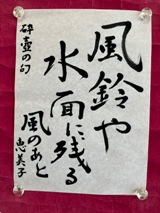 風鈴や
水面に残る
風のあと
恵美子
砕壺の句